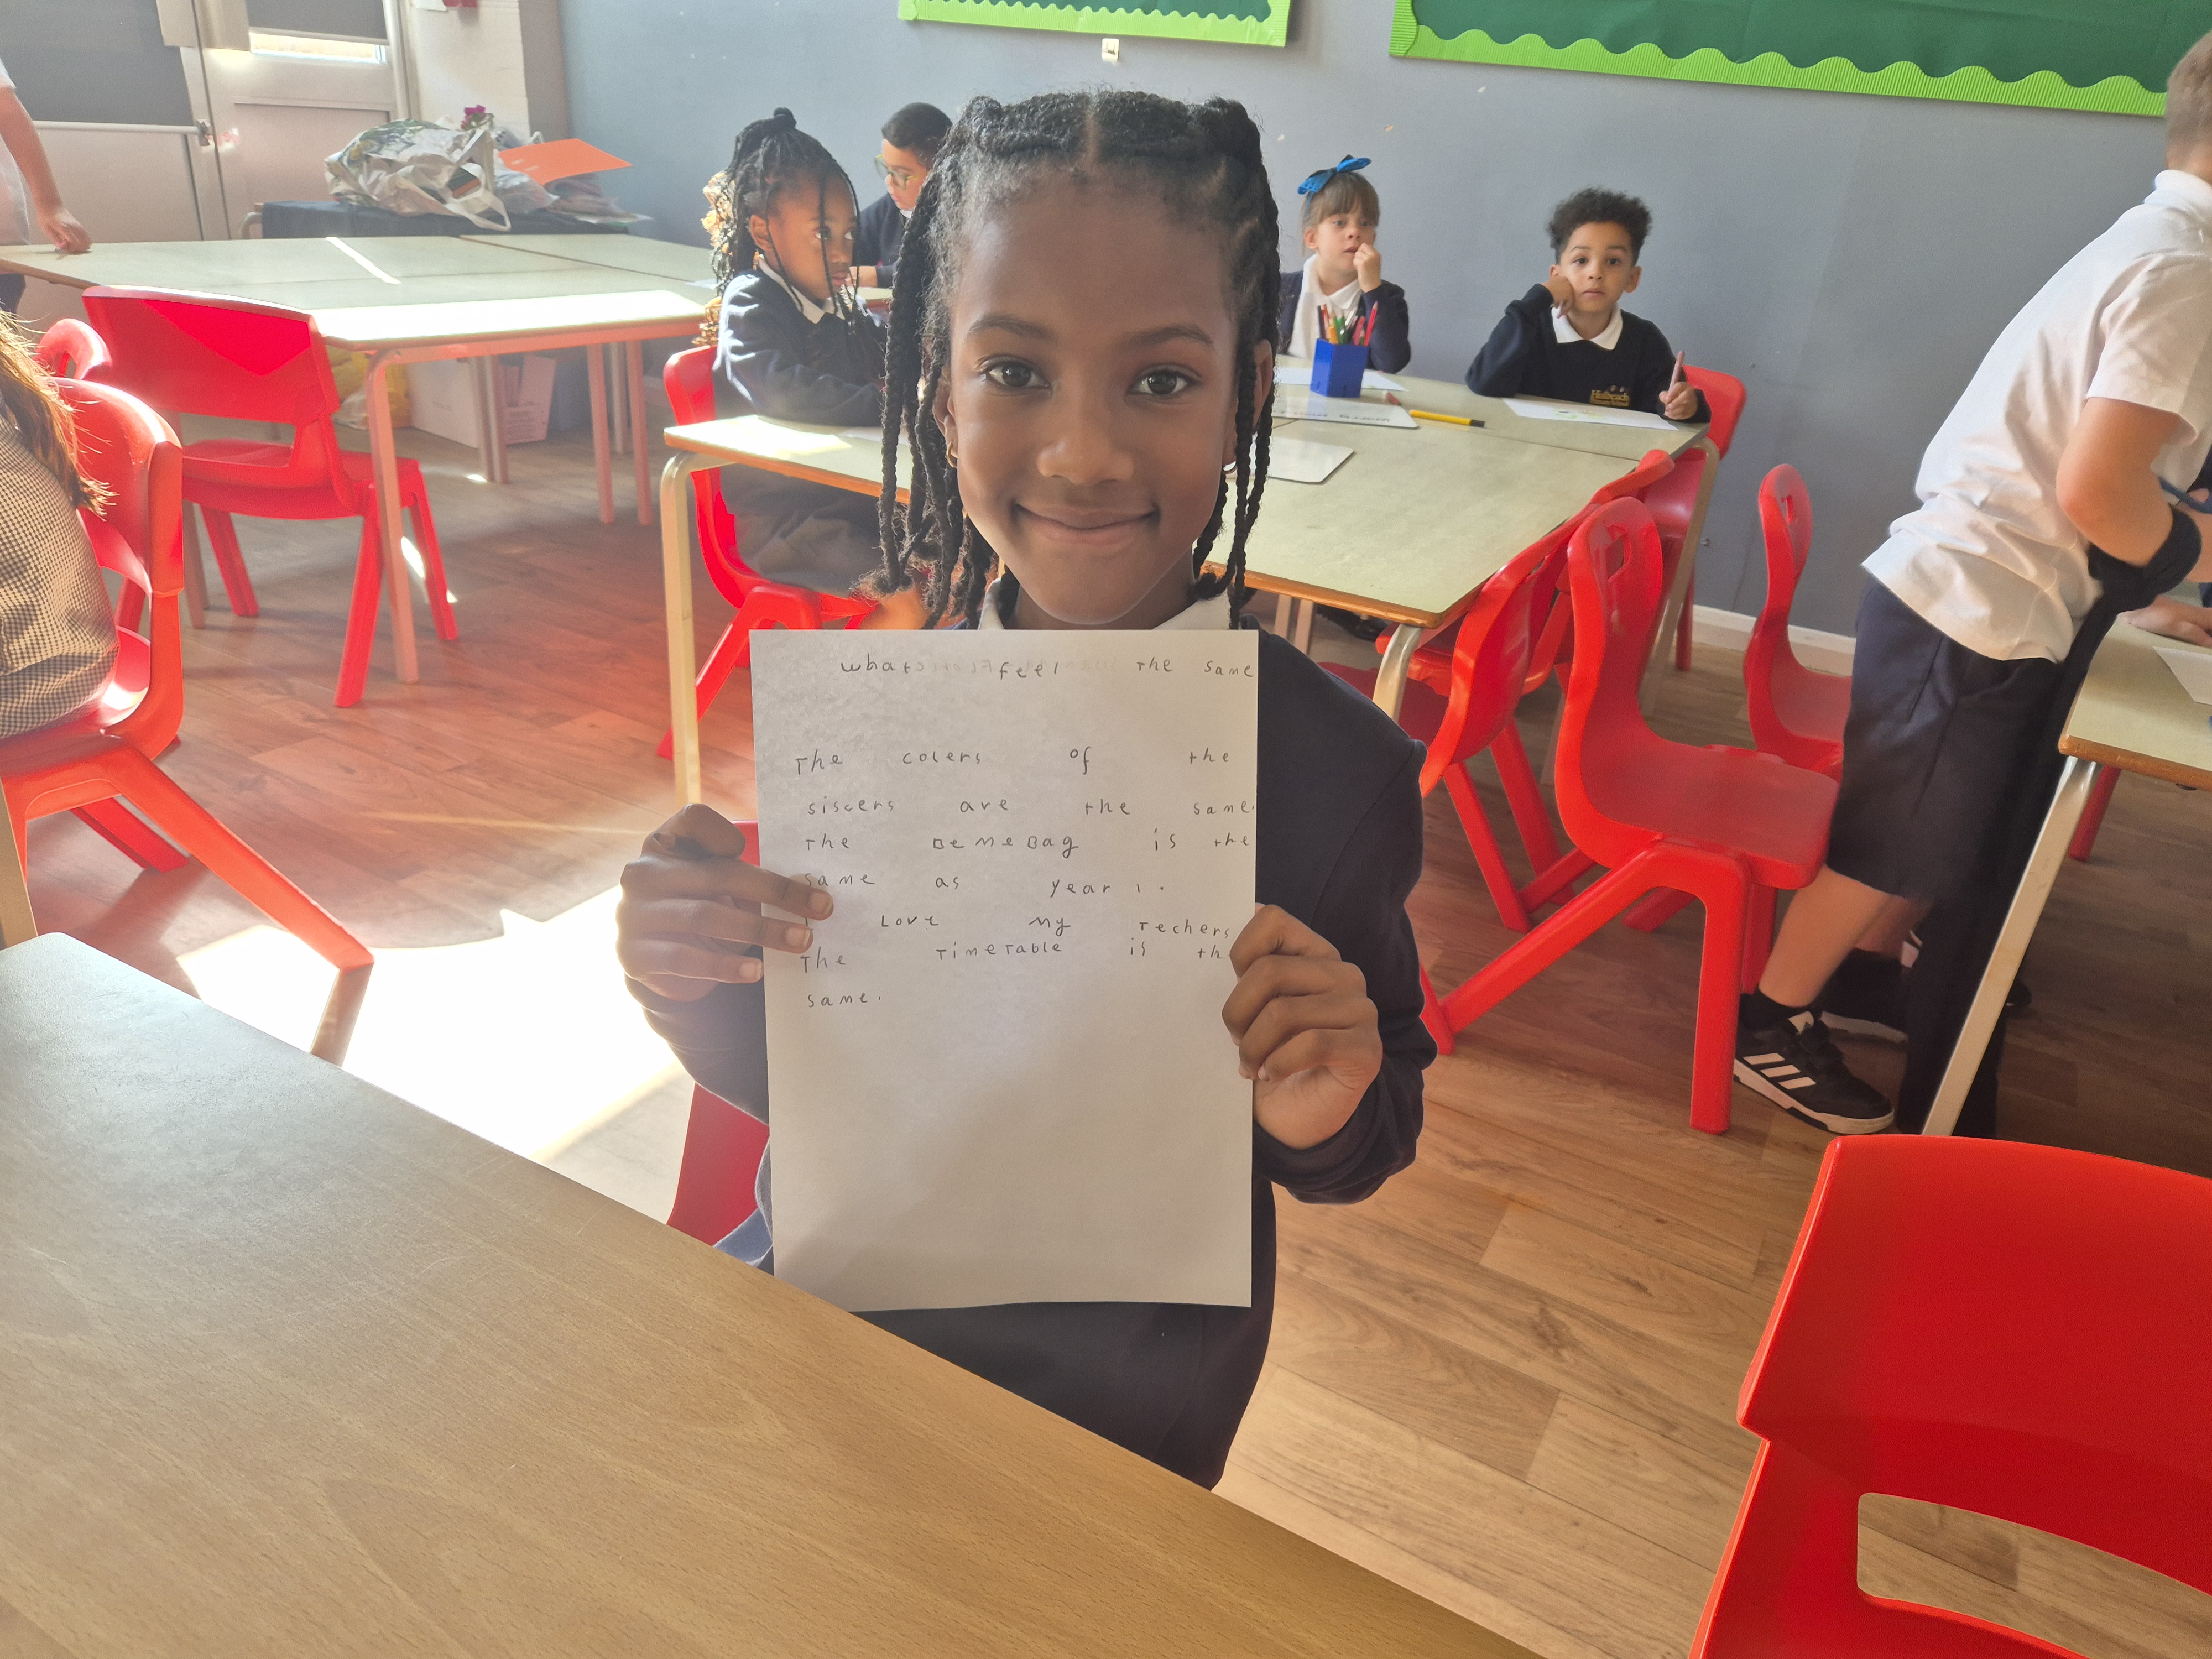 what feel The same
The colers of the
siscers are the same.
The BemeBag is the
same as year 1.
I Love My Techers
The TimeTable is the
same.
Holbeach